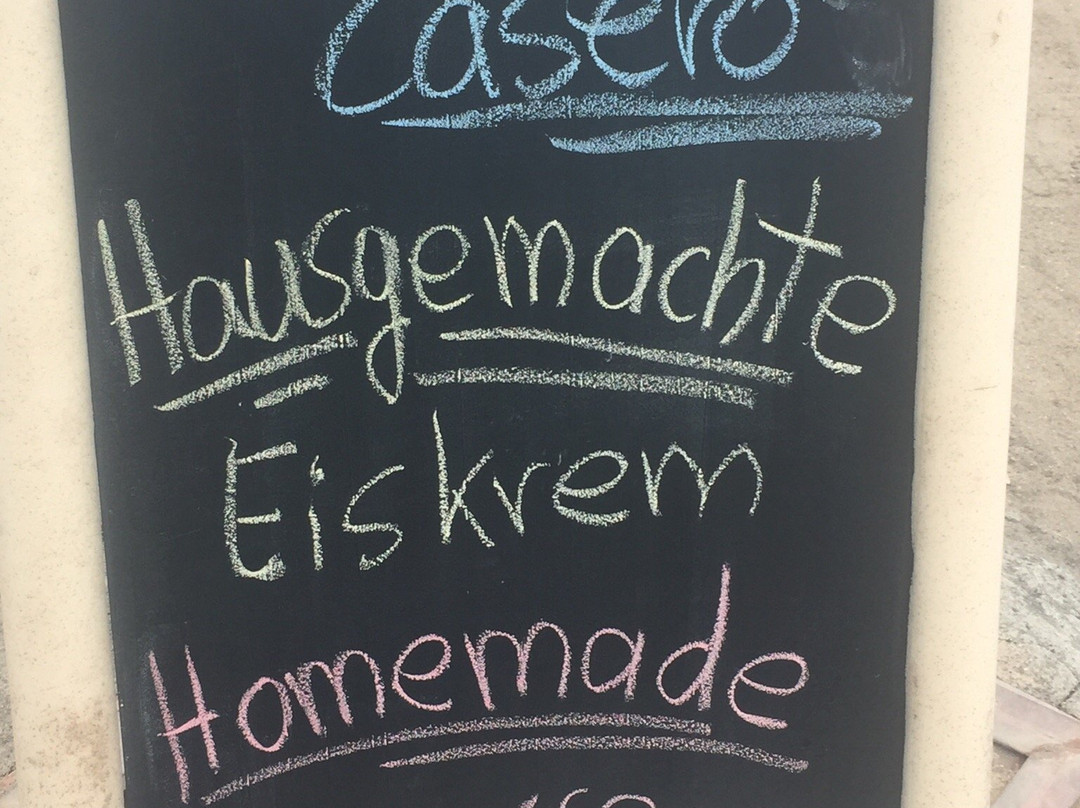 Casero
Hausgemachte
Eiskrem
Homemade